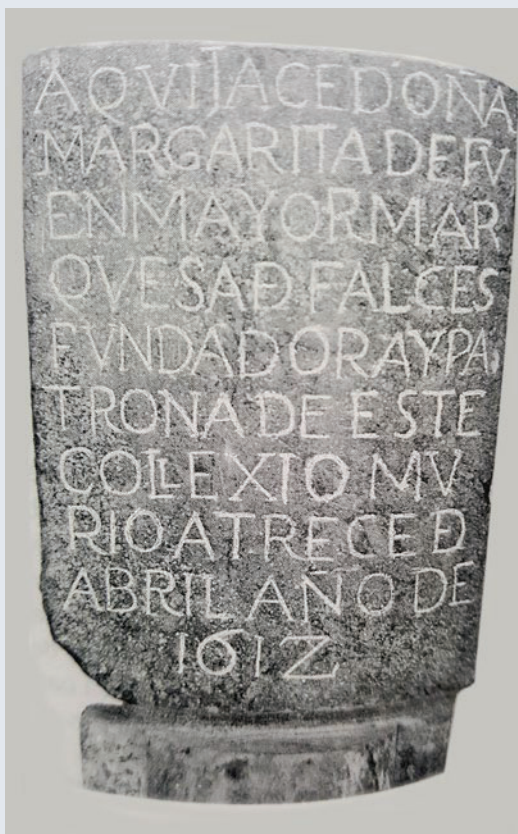 AQVI IACE DOÑA
MARGARITA DE FV
ENMAYOR MAR
QVESA Đ FALCES
FVNDADORA Y PA
TRONA DE ESTE
COLLEXIO MV
RIO A TRECE Đ
ABRIL AÑO DE
1612